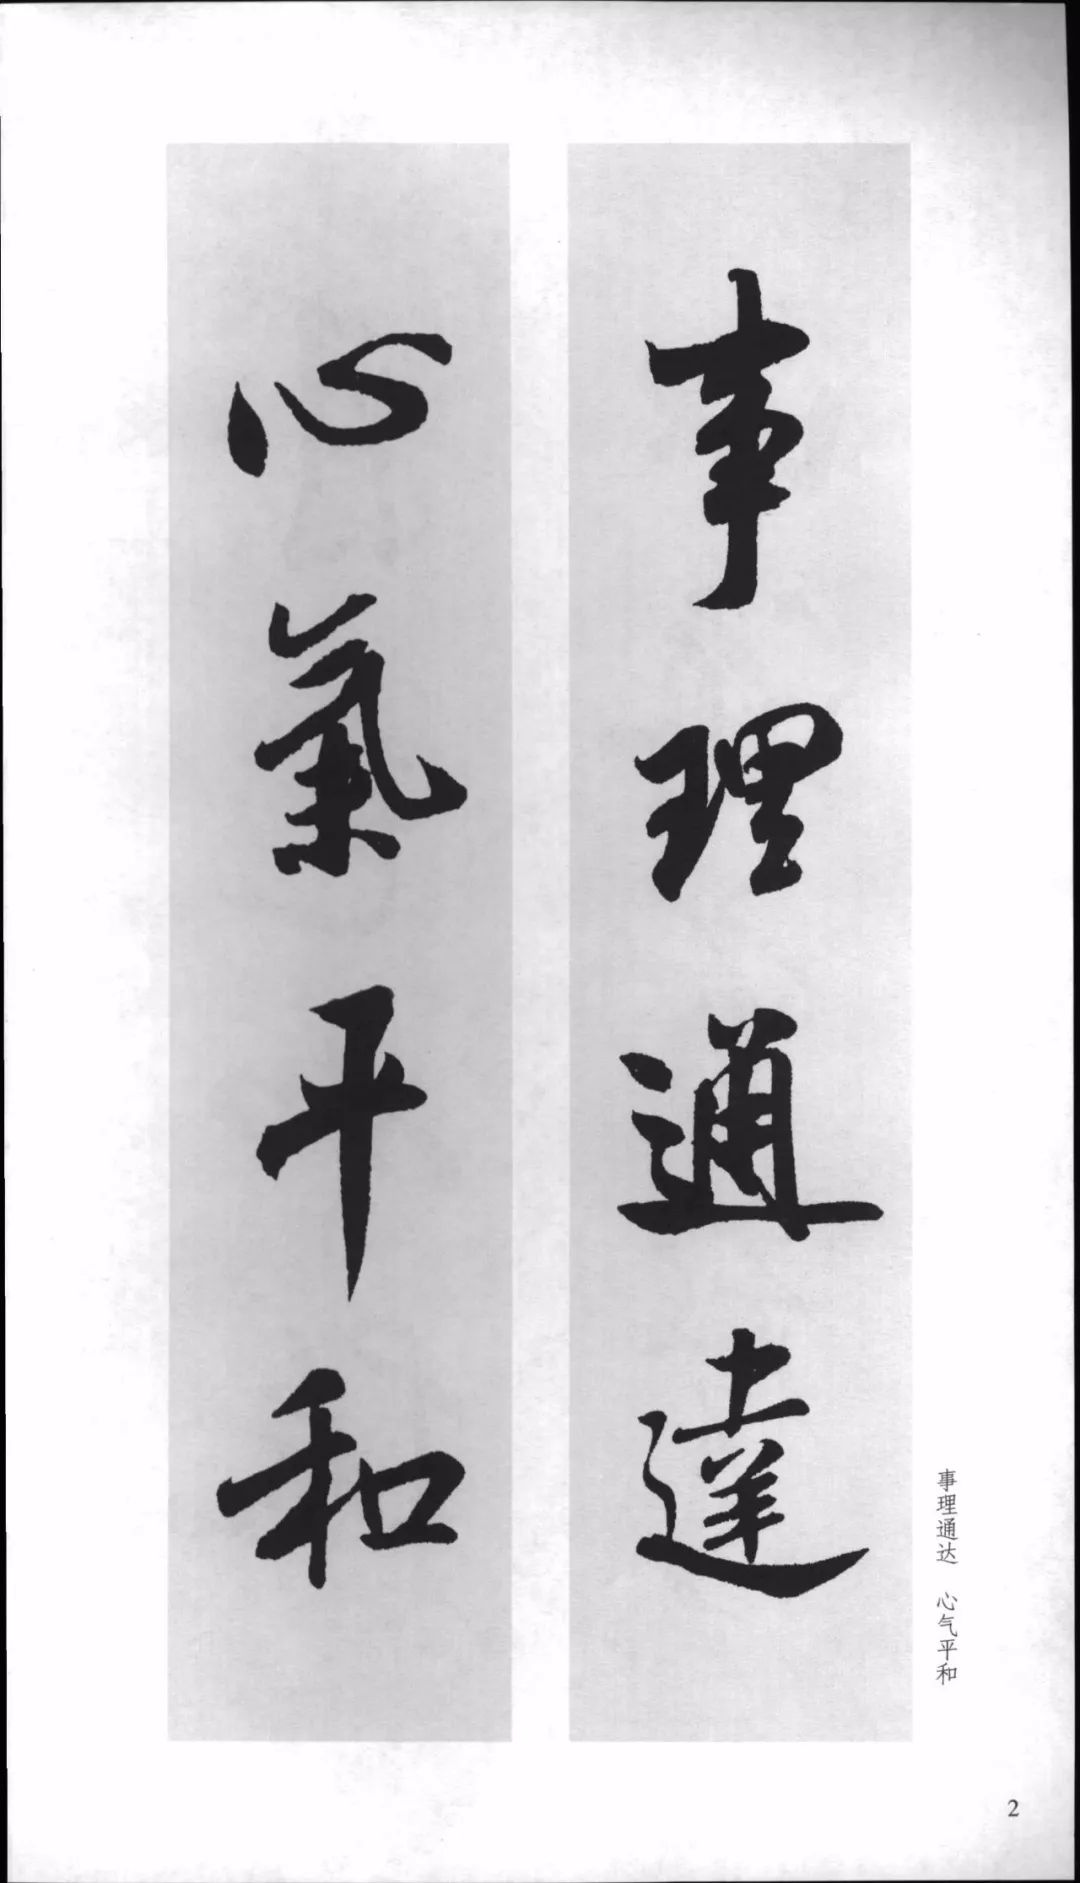 事理通達
心氣平和
事理通达　心气平和
2